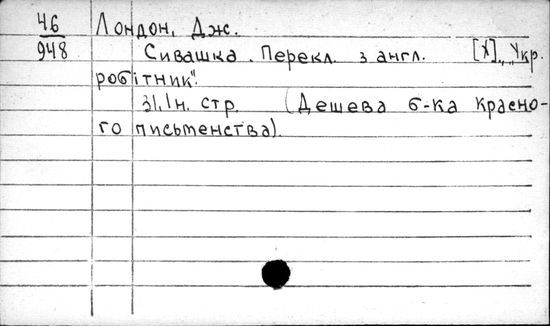 46 Лондон, Дж.
948 Сивашка. Перекл. з англ. [Х]., „Укр.
робітник".
31, Ін. стр. (Дешева б-ка красно-
го письменства).